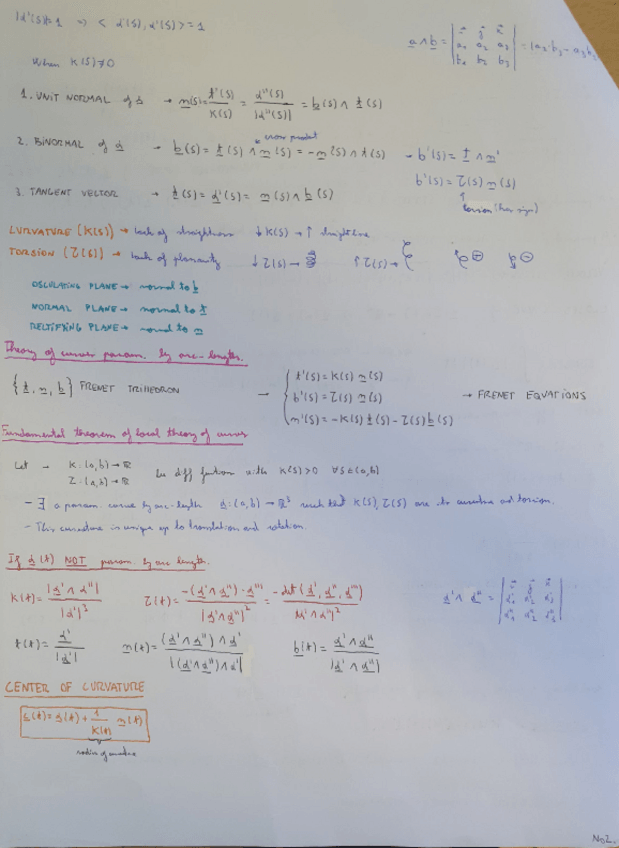 |α'(s)|=1 ⇒ < α'(s), α'(s) > = 1
a ∧ b = | i j k ; a1 a2 a3 ; b1 b2 b3 | = (a2·b3 - a3b2
When K(s)≠0
1. UNIT NORMAL of α → n(s) = t'(s)/K(s) = α''(s)/|α''(s)| = b(s) ∧ t(s)
cross product
2. BINORMAL of α → b(s) = t(s) ∧ n(s) = -n(s) ∧ t(s) → b'(s) = t ∧ n'
b'(s) = τ(s) n(s)
torsion (has sign)
3. TANGENT VECTOR → t(s) = α'(s) = n(s) ∧ b(s)
CURVATURE (K(s)) → lack of straightness ↓K(s) → ↑ straightline
TORSION (τ(s)) → lack of planarity ↓τ(s) → ↑τ(s) → ⊕ ⊖
OSCULATING PLANE → normal to b
NORMAL PLANE → normal to t
RECTIFYING PLANE → normal to n
Theory of curves param. by arc-length.
{t, n, b} FRENET TRIHEDRON → { t'(s) = K(s) n(s)
b'(s) = τ(s) n(s) → FRENET EQUATIONS
n'(s) = -K(s) t(s) - τ(s) b(s)
Fundamental theorem of local theory of curves
Let → K: (a,b) → ℝ
τ: (a,b) → ℝ be diff function with K(s)>0 ∀s∈(a,b)
- ∃ a param curve by arc-length α: (a,b) → ℝ³ such that K(s), τ(s) are its curvature and torsion.
- This curvature is unique up to translation and rotation.
If α(t) NOT param. by arc length.
K(t) = |α' ∧ α''| / |α'|³ τ(t) = -(α' ∧ α'')·α''' / |α' ∧ α''|² = -det(α', α'', α''') / |α' ∧ α''|² α' ∧ α'' = | i j k ; α'1 α'2 α'3 ; α''1 α''2 α''3 |
t(t) = α' / |α'| n(t) = (α' ∧ α'') ∧ α' / |(α' ∧ α'') ∧ α'| b(t) = α' ∧ α'' / |α' ∧ α''|
CENTER OF CURVATURE
c(t) = α(t) + 1/K(t) n(t)
radius of curvature